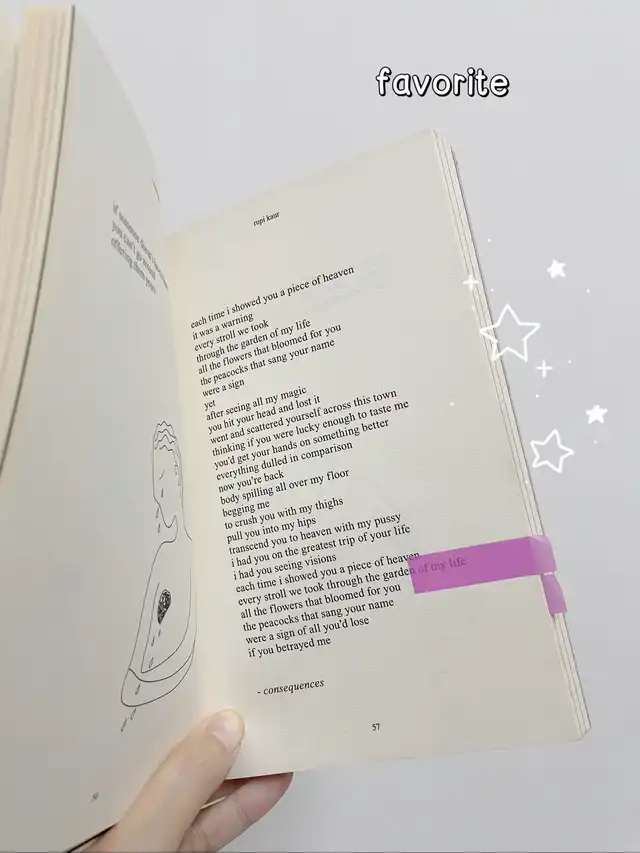 favorite
if someone
you can't go around
offering them your
50
rupi kaur
each time i showed you a piece of heaven
it was a warning
every stroll we took
through the garden of my life
all the flowers that bloomed for you
the peacocks that sang your name
were a sign
yet
after seeing all my magic
you hit your head and lost it
went and scattered yourself across this town
thinking if you were lucky enough to taste me
you'd get your hands on something better
everything dulled in comparison
now you're back
body spilling all over my floor
begging me
to crush you with my thighs
pull you into my hips
transcend you to heaven with my pussy
i had you on the greatest trip of your life
i had you seeing visions
each time i showed you a piece of heaven
every stroll we took through the garden of my life
all the flowers that bloomed for you
the peacocks that sang your name
were a sign of all you'd lose
if you betrayed me
- consequences
57